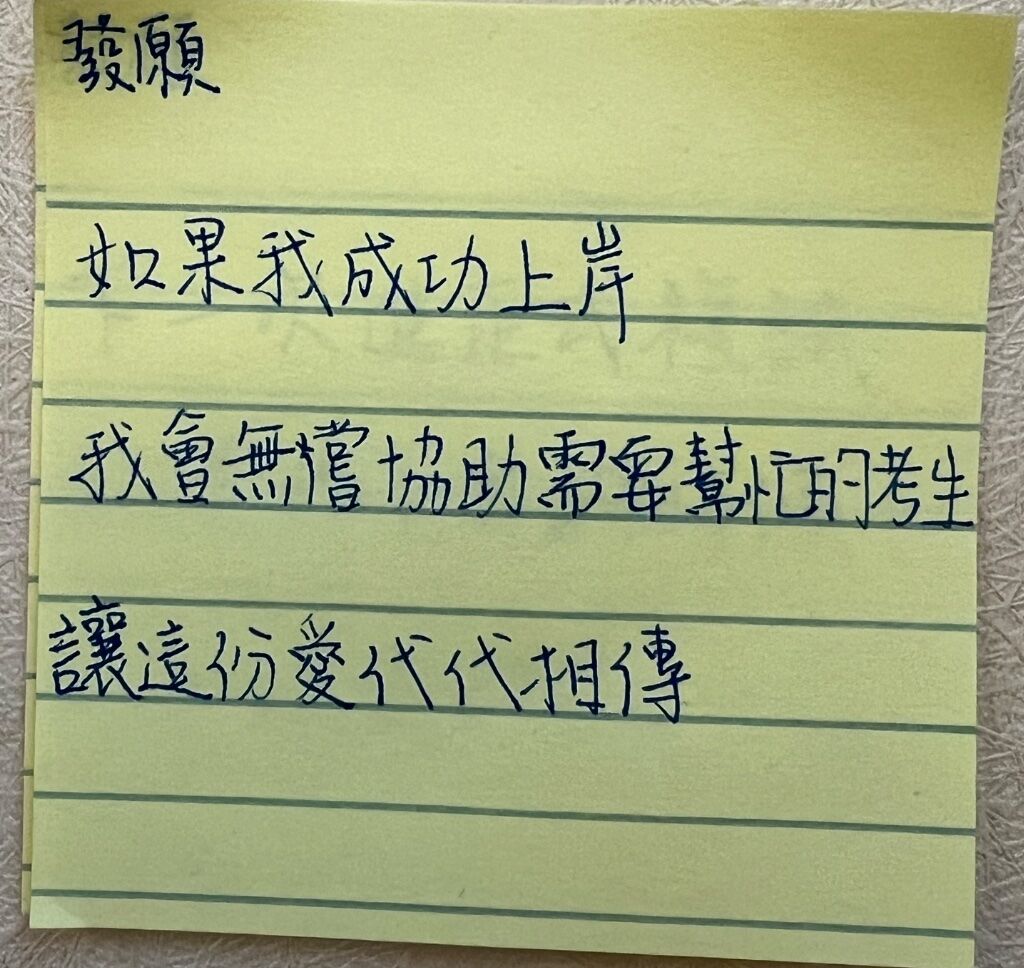 發願
如果我成功上岸
我會無嚐協助需要幫忙的考生
讓這份愛代代相傳